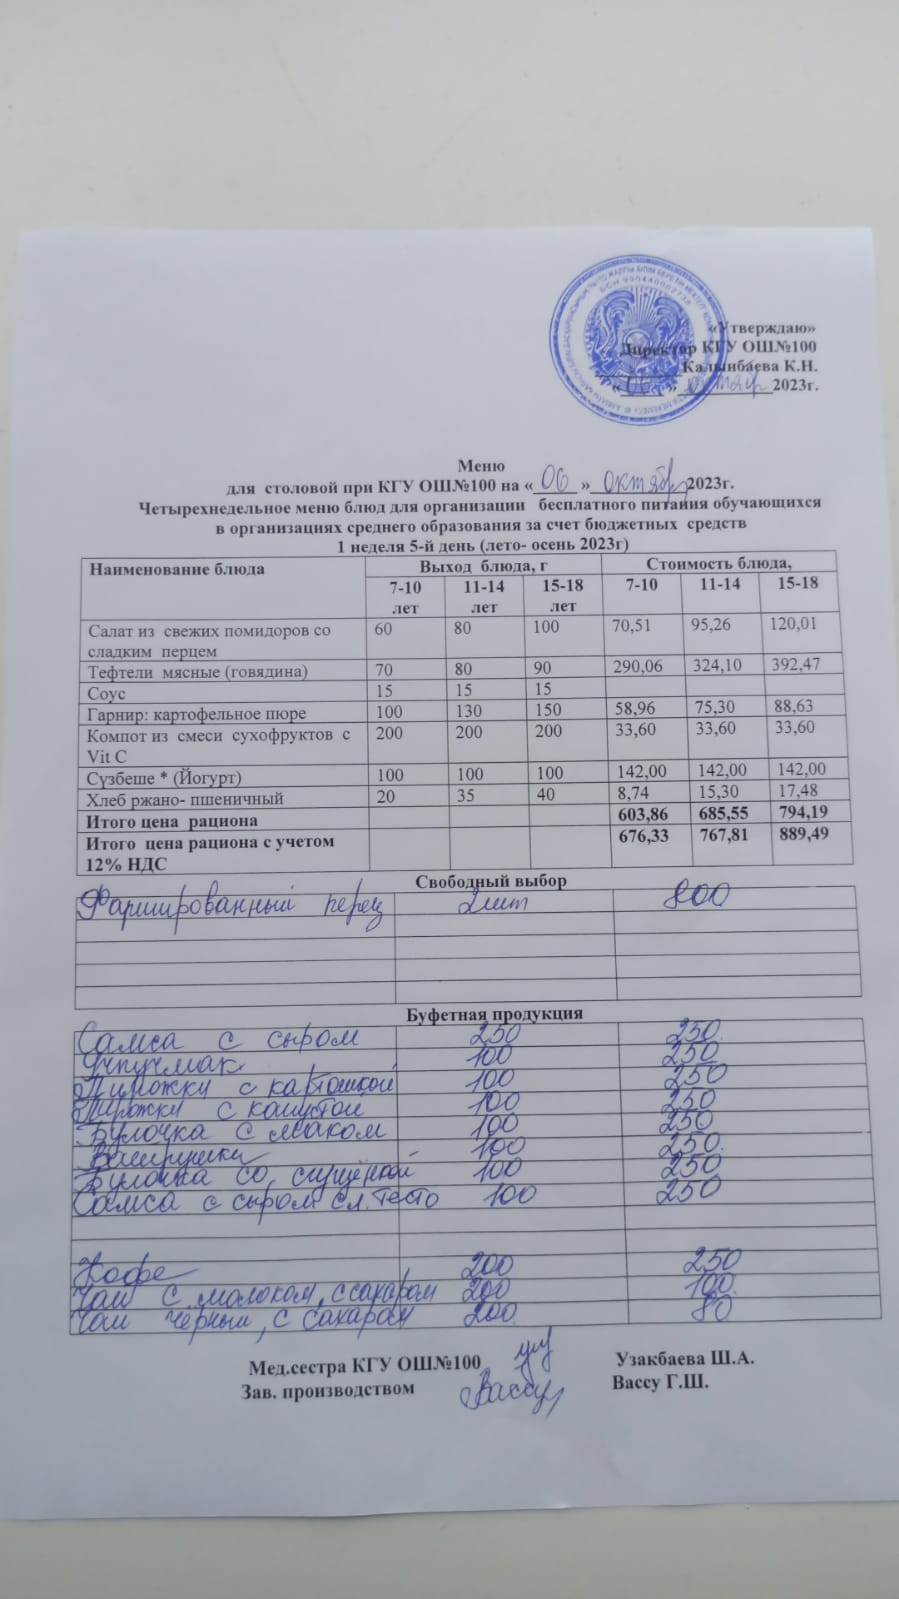 «Утверждаю»
Директор КГУ ОШ№100
Калынбаева К.Н.
«06» октябр 2023г.
Меню
для столовой при КГУ ОШ№100 на «06» октябр 2023г.
Четырехнедельное меню блюд для организации бесплатного питания обучающихся
в организациях среднего образования за счет бюджетных средств
1 неделя 5-й день (лето- осень 2023г)
Наименование блюда Выход блюда, г Стоимость блюда,
7-10 лет 11-14 лет 15-18 лет 7-10 11-14 15-18
Салат из свежих помидоров со сладким перцем 60 80 100 70,51 95,26 120,01
Тефтели мясные (говядина) 70 80 90 290,06 324,10 392,47
Соус 15 15 15
Гарнир: картофельное пюре 100 130 150 58,96 75,30 88,63
Компот из смеси сухофруктов с Vit C 200 200 200 33,60 33,60 33,60
Сузбеше * (Йогурт) 100 100 100 142,00 142,00 142,00
Хлеб ржано- пшеничный 20 35 40 8,74 15,30 17,48
Итого цена рациона 603,86 685,55 794,19
Итого цена рациона с учетом 12% НДС 676,33 767,81 889,49
Свободный выбор
Фаршированный перец 2шт 800
Буфетная продукция
Самса с сыром 250 250
Учпучмак 100 250
Пирожки с картошкой 100 250
Пирожки с капустой 100 250
Булочка с маком 100 250
Ватрушки 100 250
Булочка со сгущёнкой 100 250
Самса с сыром сл. тесто 100 250
Кофе 200 250
Чай с молоком, с сахаром 200 100
Чай черный, с сахаром 200 80
Мед.сестра КГУ ОШ№100 Узакбаева Ш.А.
Зав. производством Вассу Вассу Г.Ш.